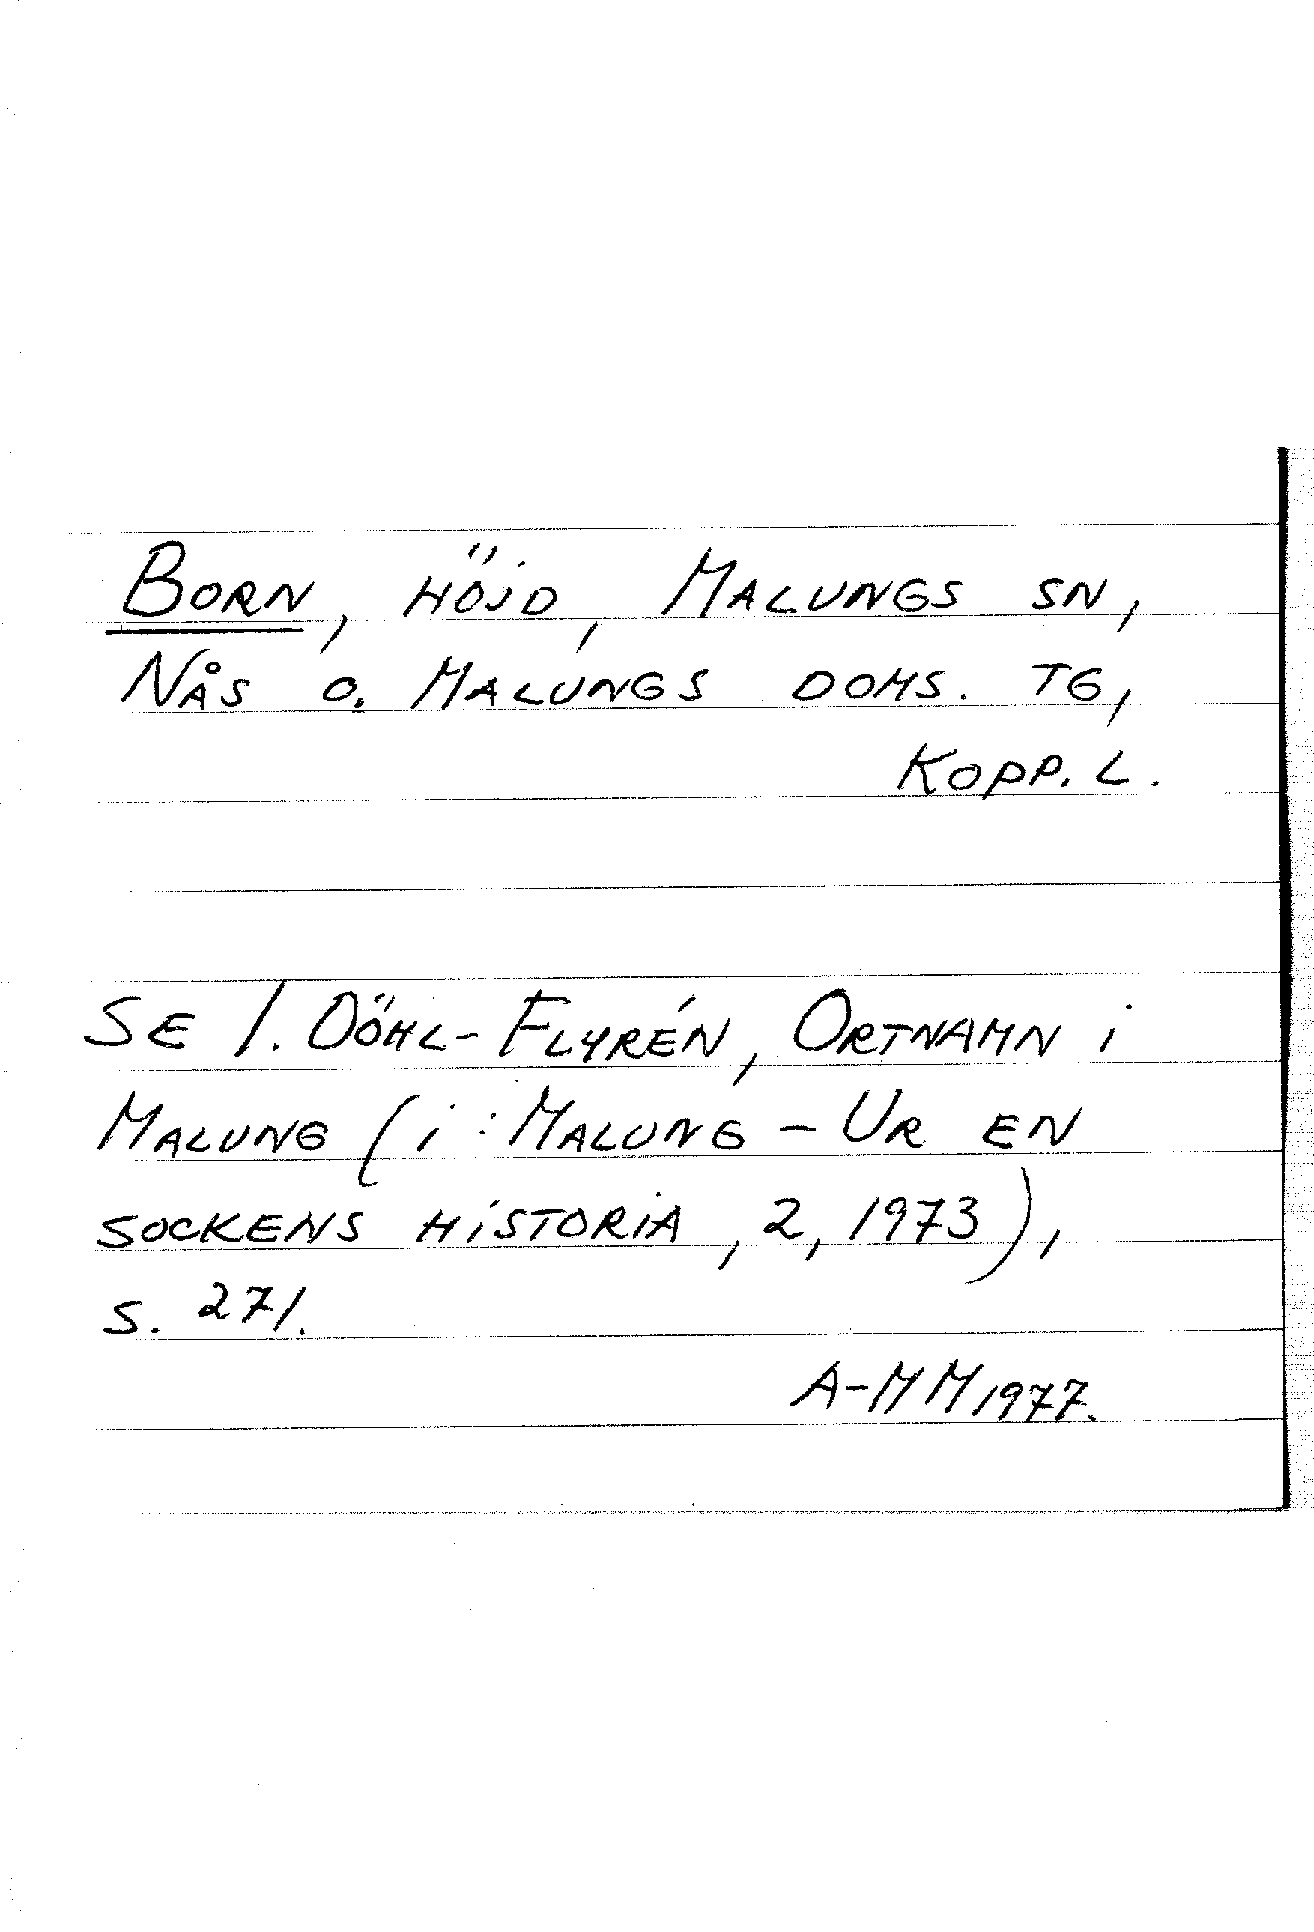 BORN, HÖJD, MALUNGS SN,
NÅS O. MALUNGS DOMS. TG,
KOPP. L.
SE I. DÖHL-FLYRÉN, ORTNAMN i
MALUNG (i: MALUNG - UR EN
SOCKENS HiSTORiA, 2, 1973),
S. 271.
A-MM 1977.